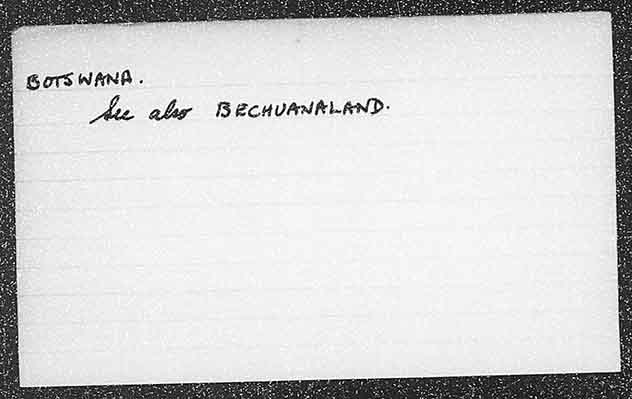 BOTSWANA.
See also BECHUANALAND.